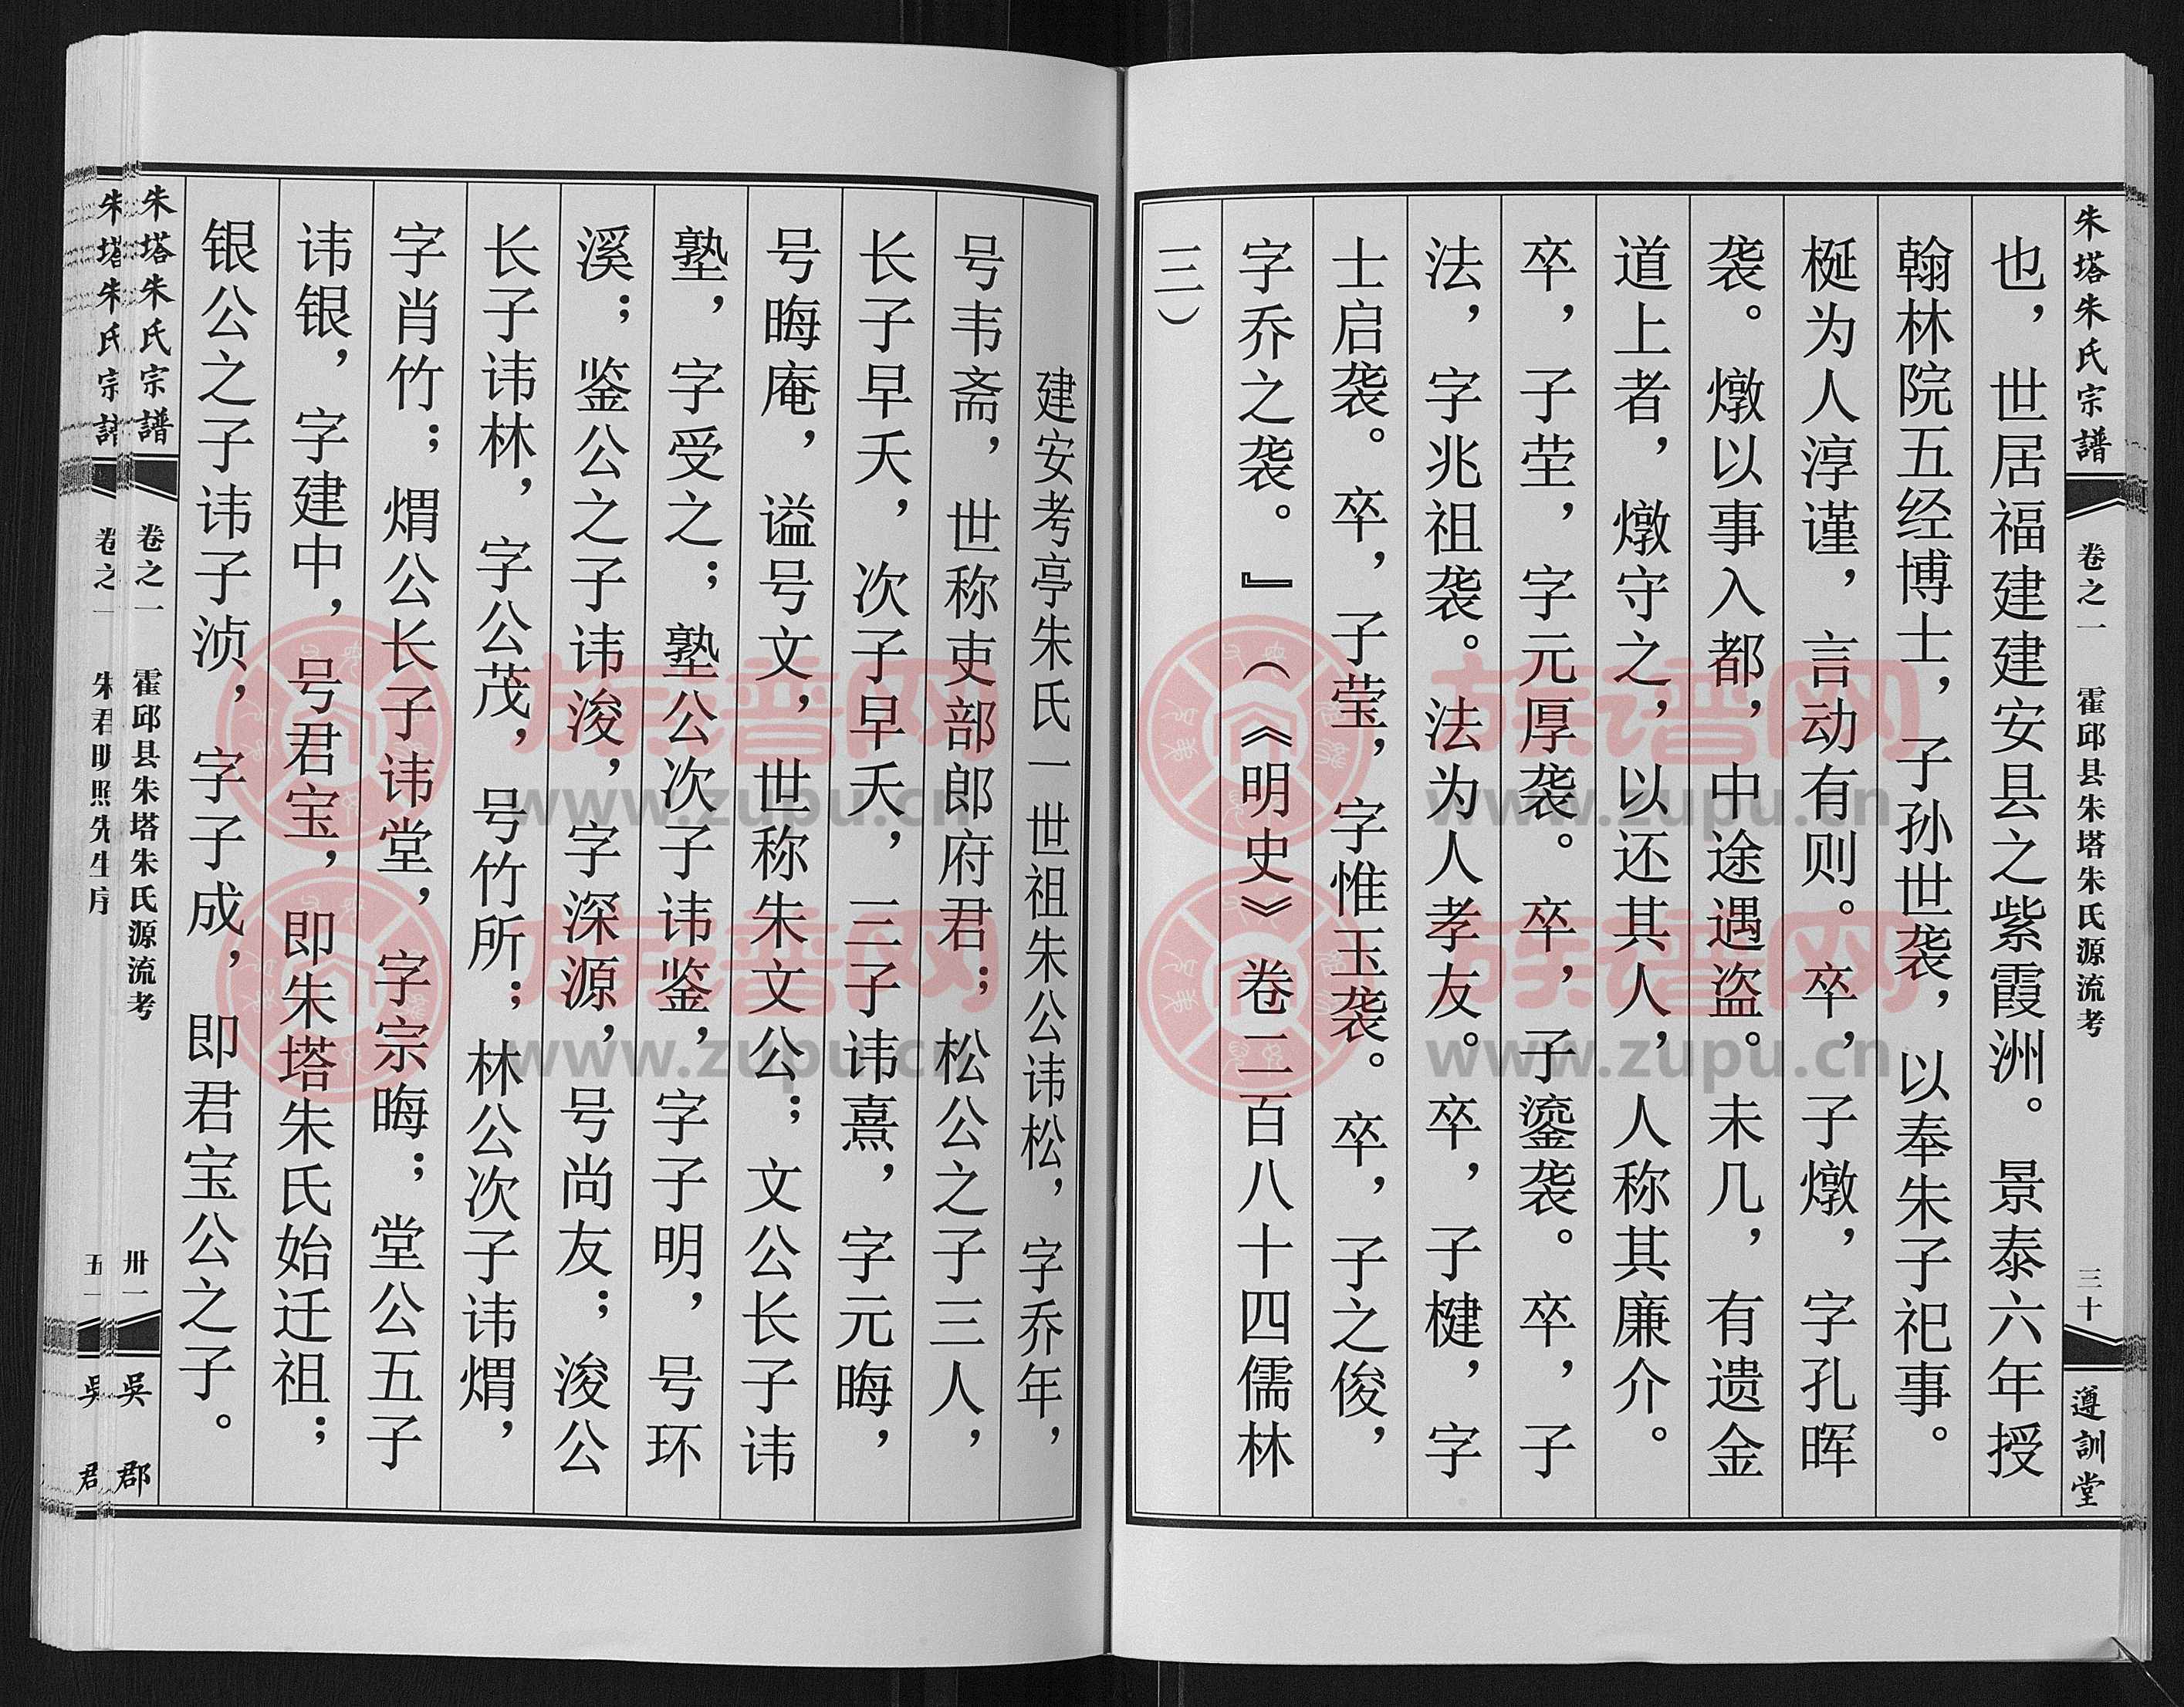 朱塔朱氏宗譜 卷之一 霍邱县朱塔朱氏源流考 三十 遵訓堂
也，世居福建建安县之紫霞洲。景泰六年授
翰林院五经博士，子孙世袭，以奉朱子祀事。
梴为人淳谨，言动有则。卒，子燉，字孔晖
袭。燉以事入都，中途遇盗。未几，有遗金
道上者，燉守之，以还其人，人称其廉介。
卒，子茔，字元厚袭。卒，子鎏袭。卒，子
法，字兆祖袭。法为人孝友。卒，子楗，字
士启袭。卒，子莹，字惟玉袭。卒，子之俊，
字乔之袭。』（《明史》卷二百八十四儒林
三）
建安考亭朱氏一世祖朱公讳松，字乔年，
号韦斋，世称吏部郎府君；松公之子三人，
长子早夭，次子早夭，三子讳熹，字元晦，
号晦庵，谥号文，世称朱文公；文公长子讳
塾，字受之；塾公次子讳鉴，字子明，号环
溪；鉴公之子讳浚，字深源，号尚友；浚公
长子讳林，字公茂，号竹所；林公次子讳煟，
字肖竹；煟公长子讳堂，字宗晦；堂公五子
讳银，字建中，号君宝，即朱塔朱氏始迁祖；
银公之子讳子浈，字子成，即君宝公之子。
朱塔朱氏宗譜 卷之一 霍邱县朱塔朱氏源流考 卅一 吳郡
朱塔朱氏宗譜 卷之一 朱君明照先生序 五一 吳郡
族谱网
www.zupu.cn
族谱网
www.zupu.cn
族谱网
www.zupu.cn
族谱网
www.zupu.cn